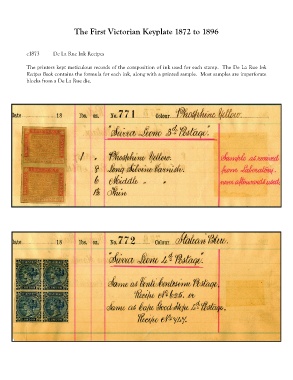 The First Victorian Keyplate 1872 to 1896
c1873 De La Rue Ink Recipes
The printers kept meticulous records of the composition of ink used for each stamp. The De La Rue Ink
Recipe Book contains the formula for each ink, along with a printed sample. Most samples are imperforate
blocks from a De La Rue die.
Date 18 lbs. oz. No. 771 Colour Phosphine Yellow.
"Sierra Leone 3d Postage".
1 " Phosphine Yellow.
9 Long Silvine Varnish.
6 Middle " "
1½ Thin
Sample as received
from laboratory,
never afterwards used.
Date 18 lbs. oz. No. 772 Colour Italian Blue.
"Sierra Leone 4d Postage".
Same as Venti Centesimi Postage,
Recipe No. 635, or
Same as Cape Good Hope 4d Postage,
Recipe No.